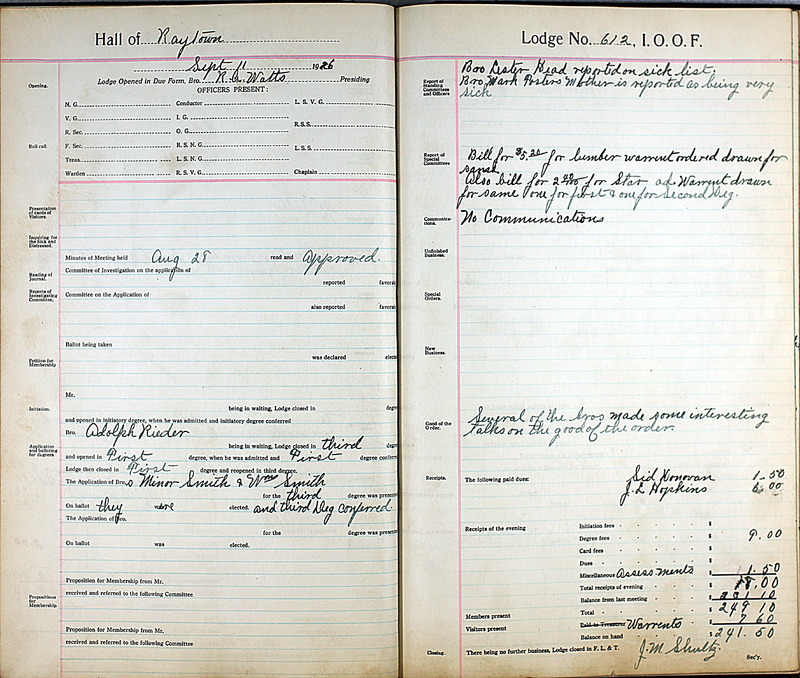 Hall of Raytown
Sept 11 1926
Lodge Opened in Due Form, Bro. R.C. Watts Presiding
Opening.
OFFICERS PRESENT:
N. G. Conductor L. S. V. G.
V. G. I. G.
R. Sec. O. G. R.S.S.
Roll call.
F. Sec. R. S. N. G. L.S.S.
Treas. L. S. N. G.
Warden R. S. V. G. Chaplain
Presentation of cards of Visitors.
Inquiring for the Sick and Distressed.
Minutes of Meeting held Aug 28 read and approved.
Reading of Journal.
Committee of Investigation on the application of
reported favora
Reports of Investigating Committee.
Committee on the Application of
also reported favora
Ballot being taken
was declared elect
Petition for Membership
Mr.
Initiation.
being in waiting, Lodge closed in degr
and opened in initiatory degree, when he was admitted and initiatory degree conferred
Bro. Adolph Rieder
Application and balloting for degrees
being in waiting, Lodge closed in third degr
and opened in First degree, when he was admitted and First degree confer
Lodge then closed in First degree and reopened in third degree.
The Application of Bro.s Minor Smith & Wm Smith
for the third degree was present
On ballot they were elected. and third Deg conferred
The Application of Bro.
for the degree was present
On ballot was elected.
Propositions for Membership
Proposition for Membership from Mr.
received and referred to the following Committee
Proposition for Membership from Mr.
received and referred to the following Committee
Lodge No. 612, I. O. O. F.
Report of Standing Committees and Officers
Boo Lester Head reported on sick list.
Bro. Mark Posters Mother is reported as being very
sick
Report of Special Committees
Bill for $5.20 for lumber warrent ordered drawn for
same
Also bill for 2 for Star ad. Warrent drawn
for same one for first & one for second Deg.
Communications.
No Communications
Unfinished Business.
Special Orders.
New Business.
Good of the Order.
Several of the bros made some interesting
talks on the good of the order.
Receipts.
The following paid dues: Sid Donovan 1.50
J.L Hopkins 6.00
Receipts of the evening Initiation fees $
Degree fees $ 9.00
Card fees $
Dues $
Miscellaneous Assessments $ 1.50
Total receipts of evening $ 18.00
Balance from last meeting $ 231 10
Members present Total $ 249 10
Visitors present Paid to Treasurer Warrents $ 7 60
Balance on hand $ 241.50
Closing.
There being no further business, Lodge closed in F. L. & T.
J.M Shultz Sec'y.